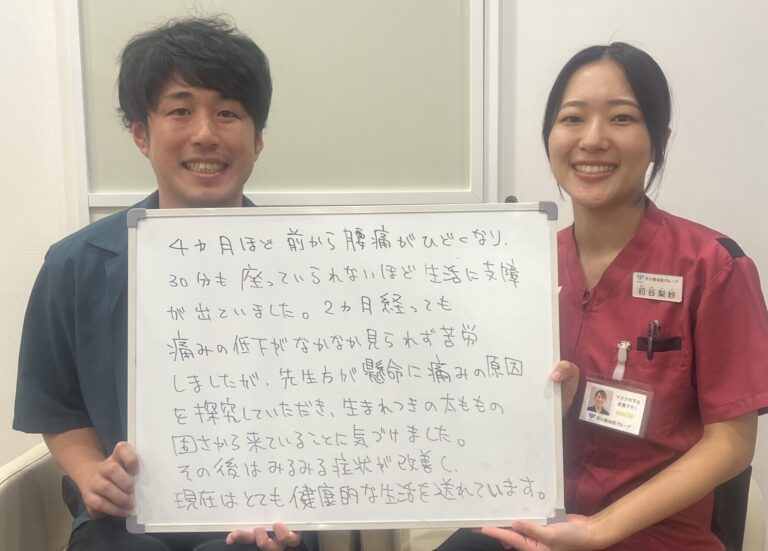 4カ月ほど前から腰痛がひどくなり、
30分も座っていられないほど生活に支障
が出ていました。2カ月経っても
痛みの低下がなかなか見られず苦労
しましたが、先生方が懸命に痛みの原因
を探究していただき、生まれつきの太ももの
固さから来ていることに気づけました。
その後はみるみる症状が改善し、
現在はとても健康的な生活を送れています。
整体院グループ
初谷梨紗
マスクの下は
笑顔です!
smile
整体院グループ